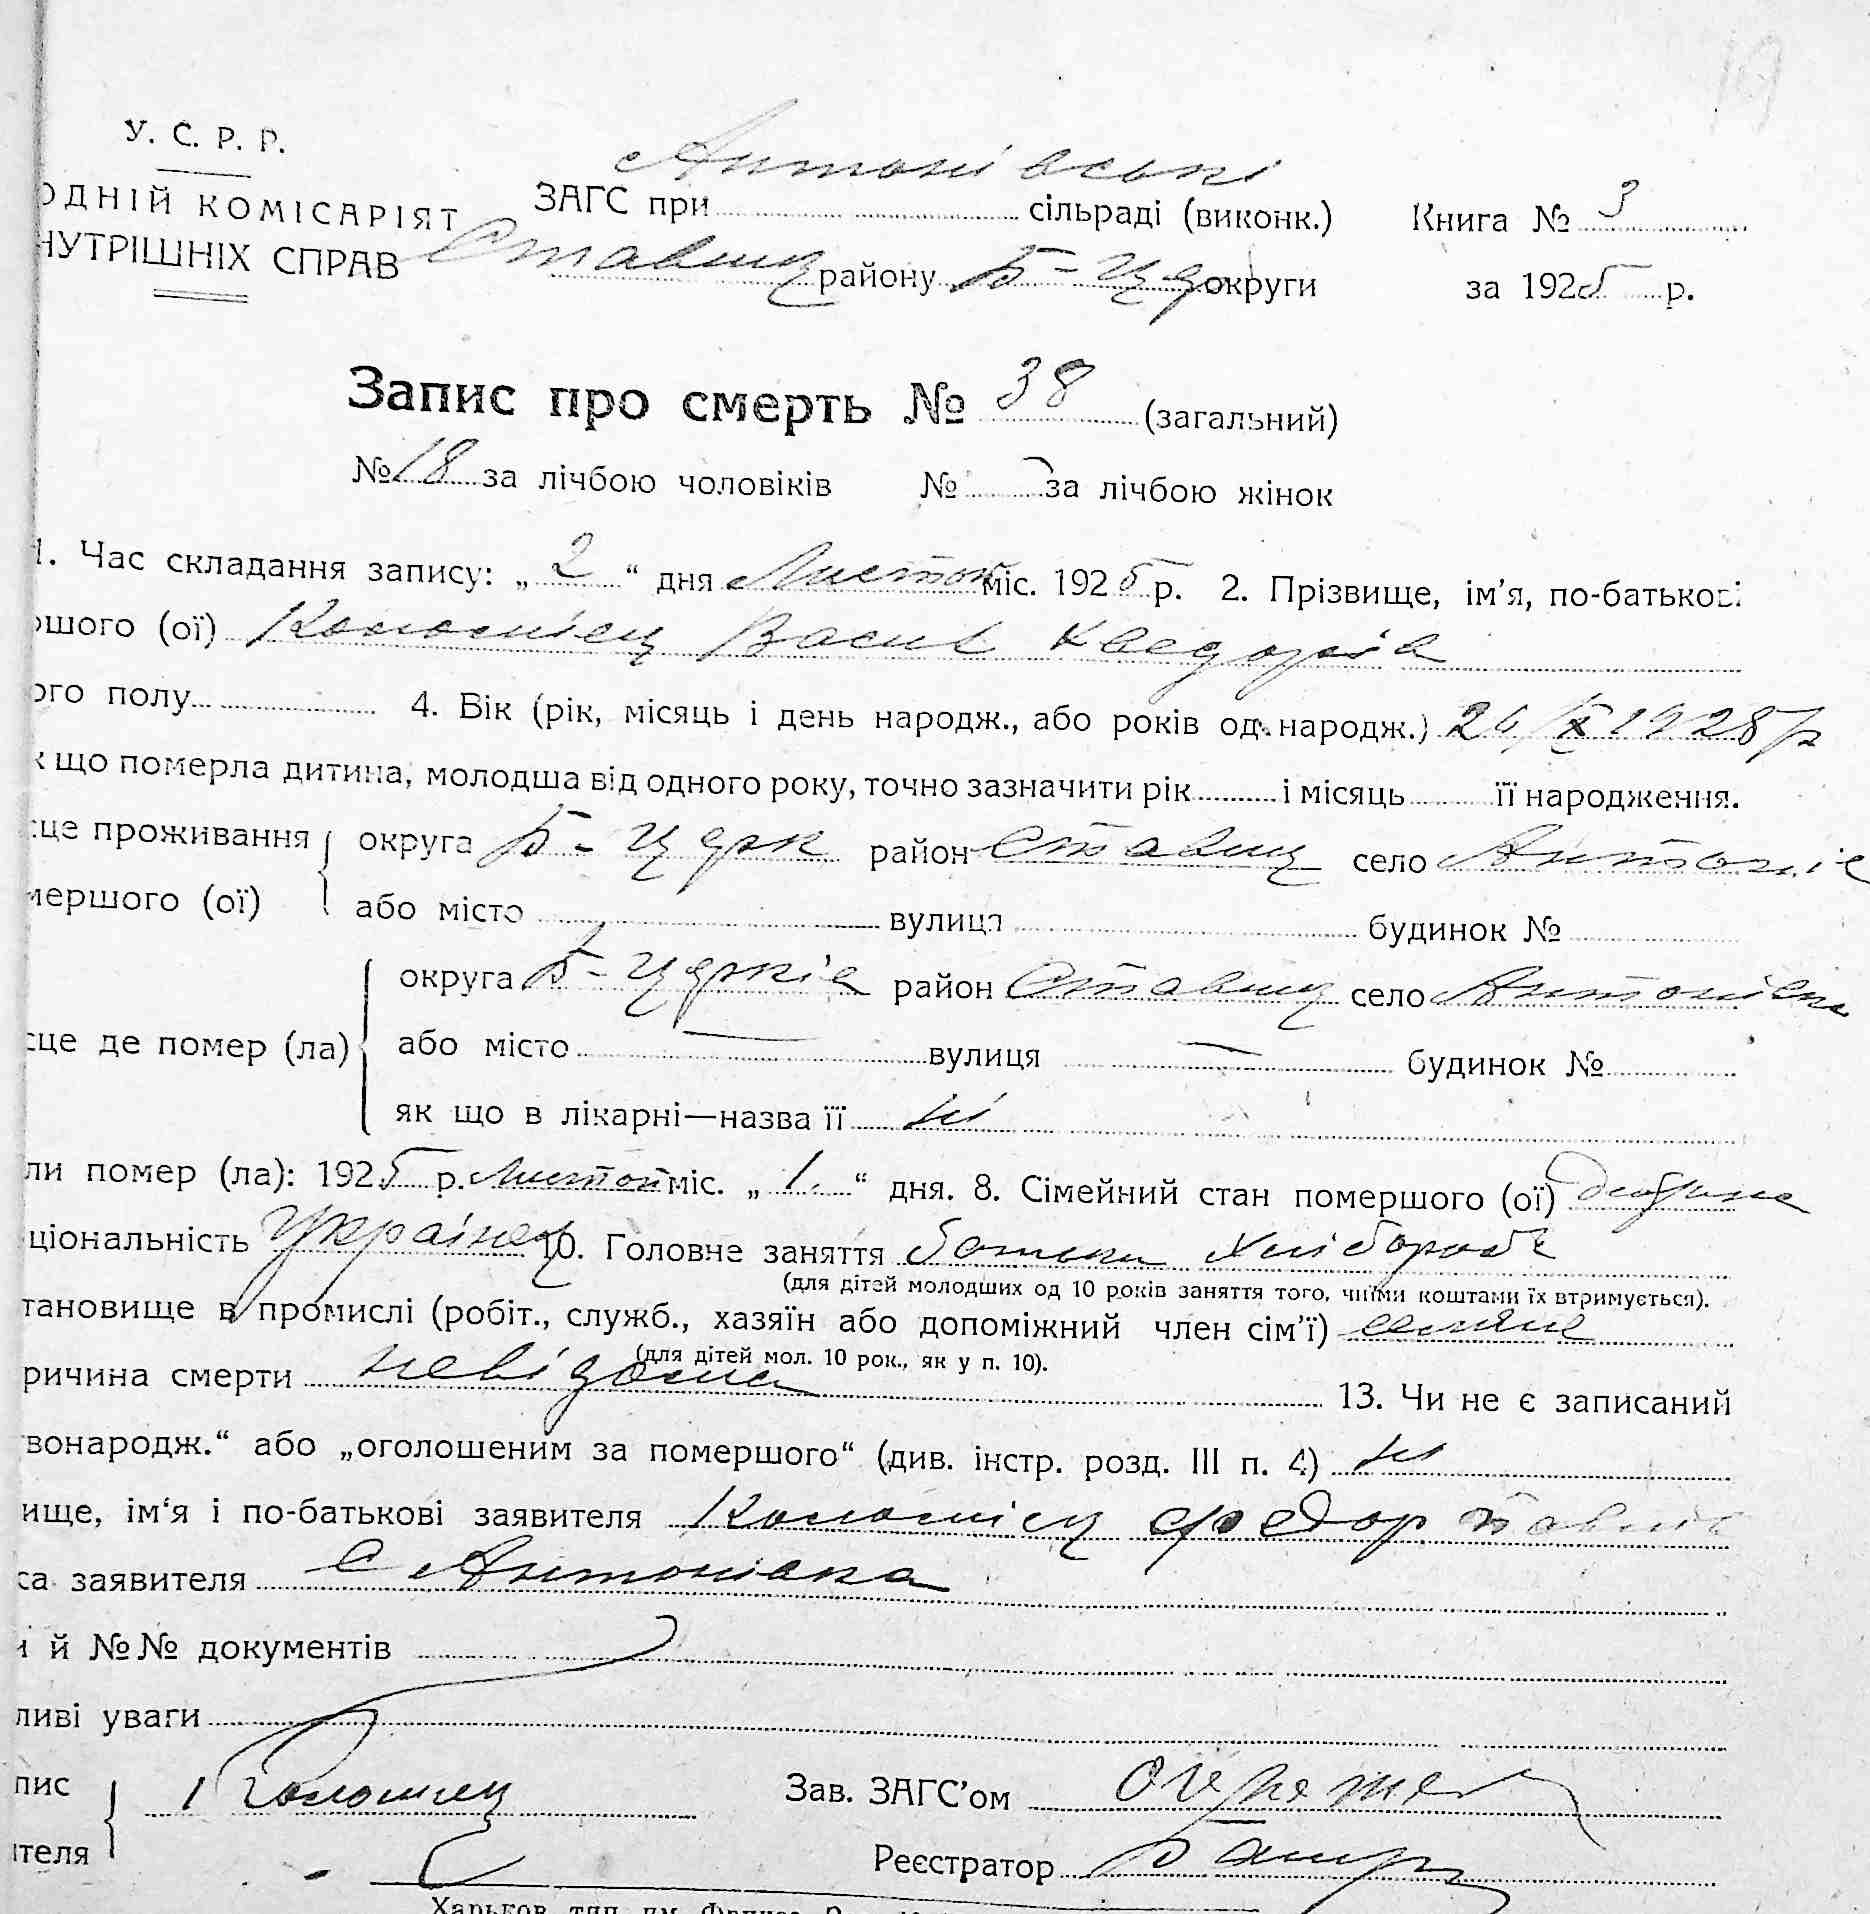 19
У. С. Р. Р.
ОДНІЙ КОМІСАРІЯТ
НУТРІШНІХ СПРАВ
ЗАГС при Антонівські сільраді (виконк.)
Ставищ району Б-Цер округи
Книга № 3
за 1925 р.
Запис про смерть № 38 (загальний)
№ 18 за лічбою чоловіків № за лічбою жінок
1. Час складання запису: „ 2 “ дня Листоп міс. 1925 р. 2. Прізвище, ім’я, по-батькові
ршого (ої) Коломієц Васил
ого полу 4. Вік (рік, місяць і день народж., або років од народж.)
к що померла дитина, молодша від одного року, точно зазначити рік і місяць її народження.
сце проживання округа Б-Церк район Ставищ село Антонів
мершого (ої) або місто вулиця будинок №
округа Б-Церків район Ставищ село Антонівка
сце де помер (ла) або місто — вулиця — будинок №
як що в лікарні—назва її ні
ли помер (ла): 1925 р. Листоп міс. „ 1. “ дня. 8. Сімейний стан помершого (ої) дитина
ціональність Українец 10. Головне заняття батьки хлібороби
(для дітей молодших од 10 років заняття того, чиїми коштами їх втримується).
тановище в промислі (робіт., служб., хазяїн або допоміжний член сім’ї) селяне
(для дітей мол. 10 рок., як у п. 10).
ричина смерти невідома 13. Чи не є записаний
вонародж.“ або „оголошеним за помершого“ (див. інстр. розд. III п. 4) ні
ище, ім‘я і по-батькові заявителя Коломієц Федор Павлів
са заявителя с Антонівка
и й №№ документів
ливі уваги
пис Коломиец Зав. ЗАГС’ом
ителя Реєстратор
Харьков, тип. им. Фрунзе